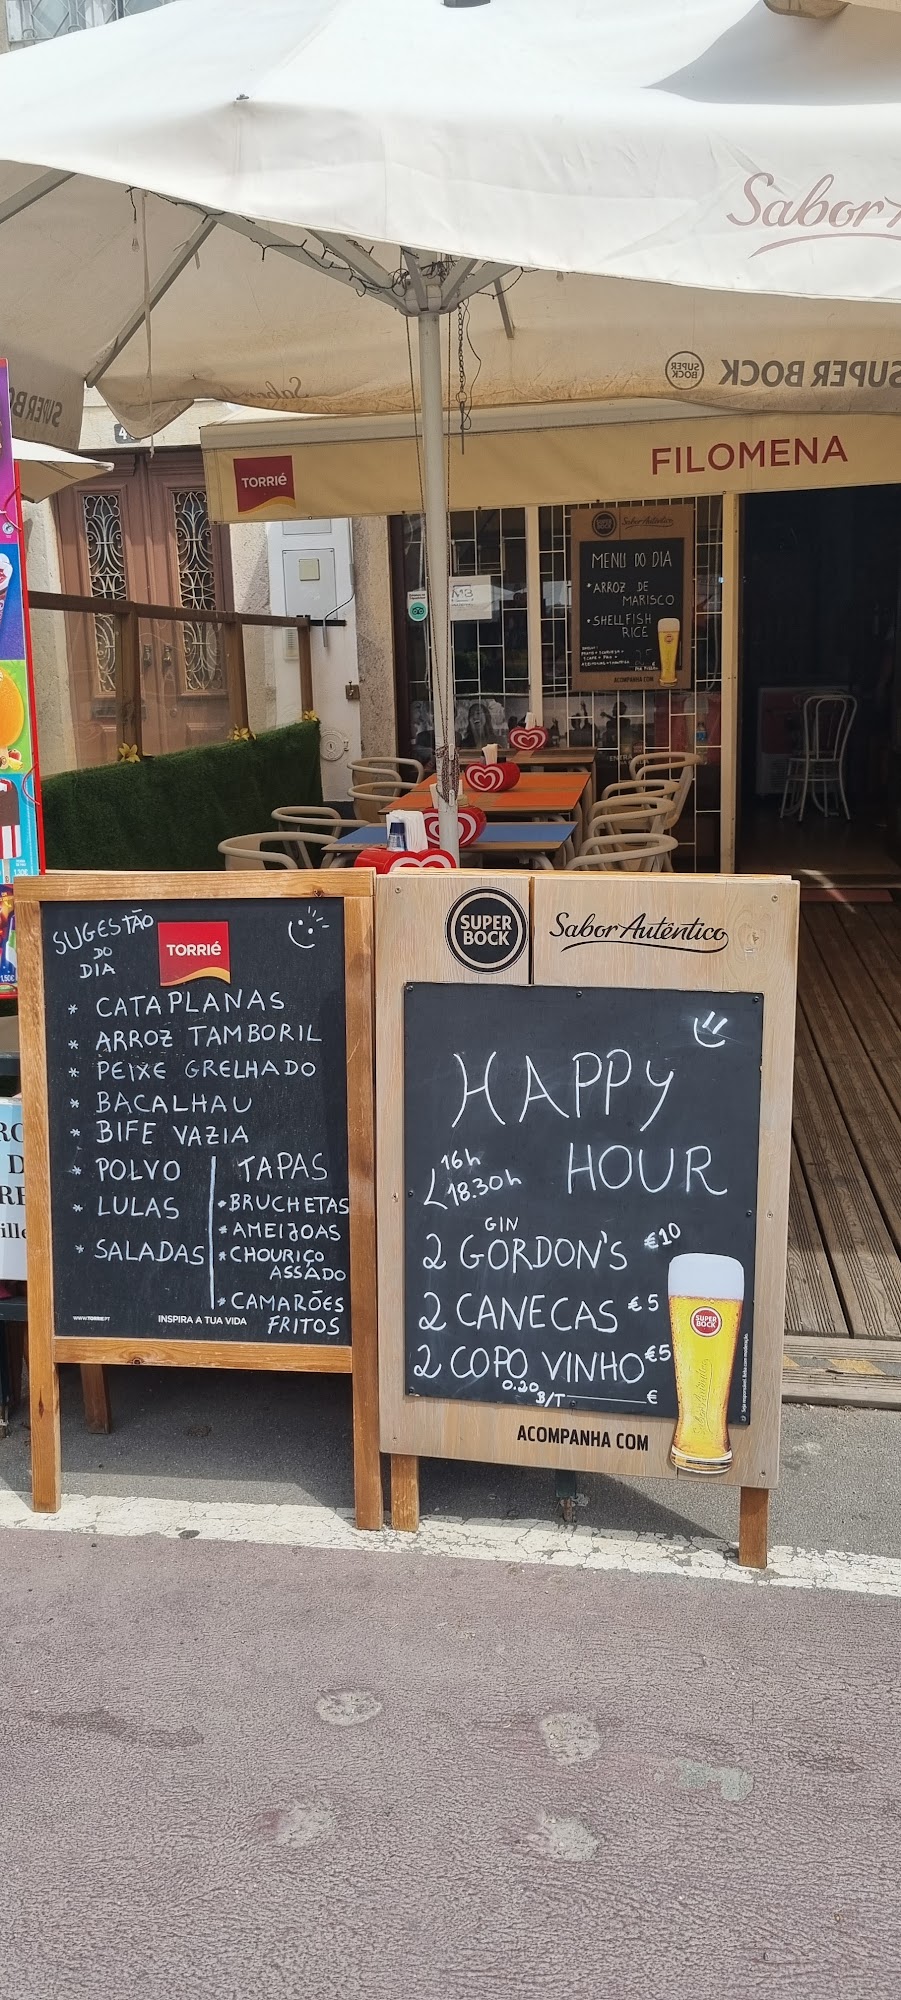 Sabor
SUPER BOCK
SUPER BOCK
TORRIÉ
FILOMENA
SUPER BOCK
Sabor Autêntico
MENU DO DIA
*ARROZ DE
MARISCO
*SHELLFISH
RICE
ACOMPANHA COM
SUGESTÃO
DO
DIA
TORRIÉ
* CATAPLANAS
* ARROZ TAMBORIL
* PEIXE GRELHADO
* BACALHAU
* BIFE VAZIA
* POLVO
* LULAS
* SALADAS
TAPAS
*BRUCHETAS
*AMEIJOAS
*CHOURIÇO
ASSADO
*CAMARÕES
FRITOS
WWW.TORRIE.PT
INSPIRA A TUA VIDA
SUPER
BOCK
Sabor Autêntico
HAPPY
HOUR
16h
18.30h
GIN
2 GORDON'S €10
2 CANECAS €5
2 COPO VINHO €5
0.20 B/T €
SUPER
BOCK
ACOMPANHA COM